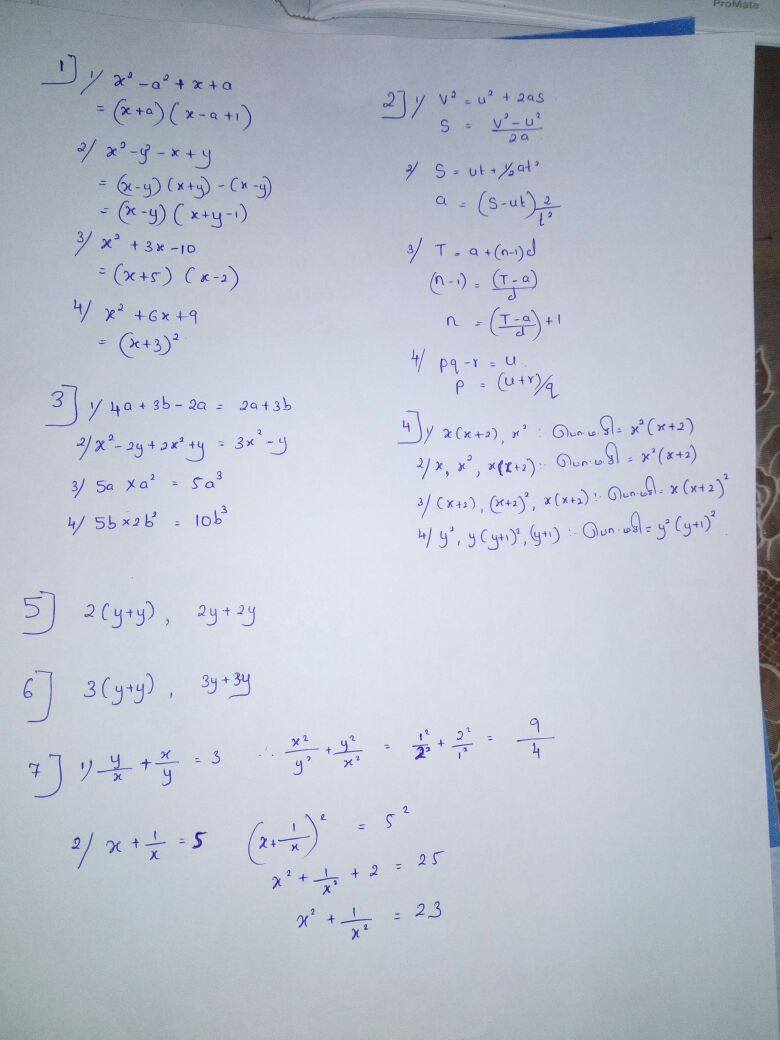 ProMate
1] 1/ x² - a² + x + a
= (x+a) (x-a+1)
2/ x² - y² - x + y
= (x-y) (x+y) - (x-y)
= (x-y) (x+y-1)
3/ x² + 3x - 10
= (x+5) (x-2)
4/ x² + 6x + 9
= (x+3)²
2] 1/ V² = u² + 2as
S = (V² - u²)/2a
2/ S = ut + ½at²
a = (S-ut) 2/t²
3/ T = a + (n-1)d
(n-1) = (T-a)/d
n = (T-a/d) + 1
4/ pq - r = u
p = (u+r)/q
3] 1/ 4a + 3b - 2a = 2a + 3b
2/ x² - 2y + 2x² + y = 3x² - y
3/ 5a × a² = 5a³
4/ 5b × 2b² = 10b³
4] 1/ x(x+2), x² : பொ.மசி = x²(x+2)
2/ x, x², x(x+2) : பொ.மசி = x²(x+2)
3/ (x+2), (x+2)², x(x+2) : பொ.மசி = x(x+2)²
4/ y², y(y+1)², (y+1) : பொ.மசி = y²(y+1)²
5] 2(y+y), 2y+2y
6] 3(y+y), 3y+3y
7] 1/ y/x + x/y = 3 ∴ x²/y² + y²/x² = 1²/2² + 2²/1² = 9/4
2/ x + 1/x = 5 (x + 1/x)² = 5²
x² + 1/x² + 2 = 25
x² + 1/x² = 23